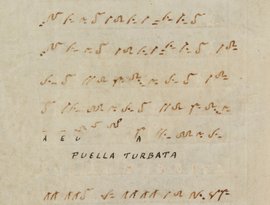 A E U A
PUELLA TURBATA